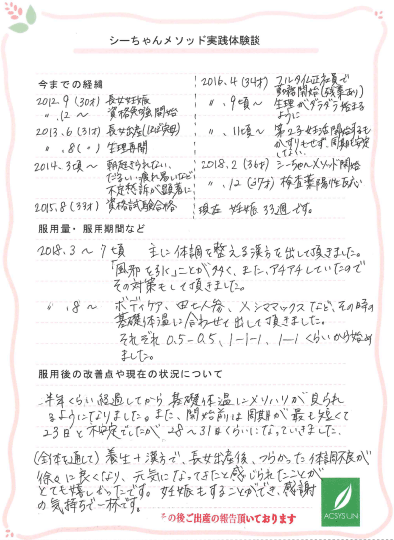 シーちゃんメソッド実践体験談
今までの経緯
2012.9 (30才) 長女妊娠
〃 .12 ～ 資格勉強開始
2013.6 (31才) 長女出産
〃 .8 ( 〃 ) 生理再開
2014.3頃～ 朝起きられない、
だるい、疲れ易いなど
不定愁訴が顕著に
2015.8 (33才) 資格試験合格
2016.4 (34才) フルタイム正社員で
勤務開始 (残業あり)
〃 . 9頃～ 生理がダラダラ始まる
ように
〃 . 11頃～ 第2子妊活開始するも
かすりもせず。周期も安定
しない。
2018.2 (36才) シーちゃんメソッド開始
〃 .12 (37才) 検査薬陽性反応
現在 妊娠33週です。
服用量・服用期間など
2018.3 ～ 7頃 主に体調を整える漢方を出して頂きました。
「風邪を引く」ことが多く、また、アチアチしていたので
その対策もして頂きました。
〃 .8 ～ ボディケア、田七人参、メシママックスなど、その時の
基礎体温に合わせて出して頂きました。
それぞれ 0.5-0.5、1-1-1、1-1 くらいから始め
ました。
服用後の改善点や現在の状況について
半年くらい経過してから基礎体温にメリハリが見られ
るようになりました。また、開始前は周期が最も短くて
23日と不安定でしたが 28～31日くらいになっていきました。
(全体を通して) 養生＋漢方で、長女出産後、つらかった体調不良が
徐々に良くなり、元気になってきたと感じられたことが
とても嬉しかったです。妊娠もすることができ、感謝
の気持ちで一杯です。
その後ご出産の報告頂いております
ACSYS LIN